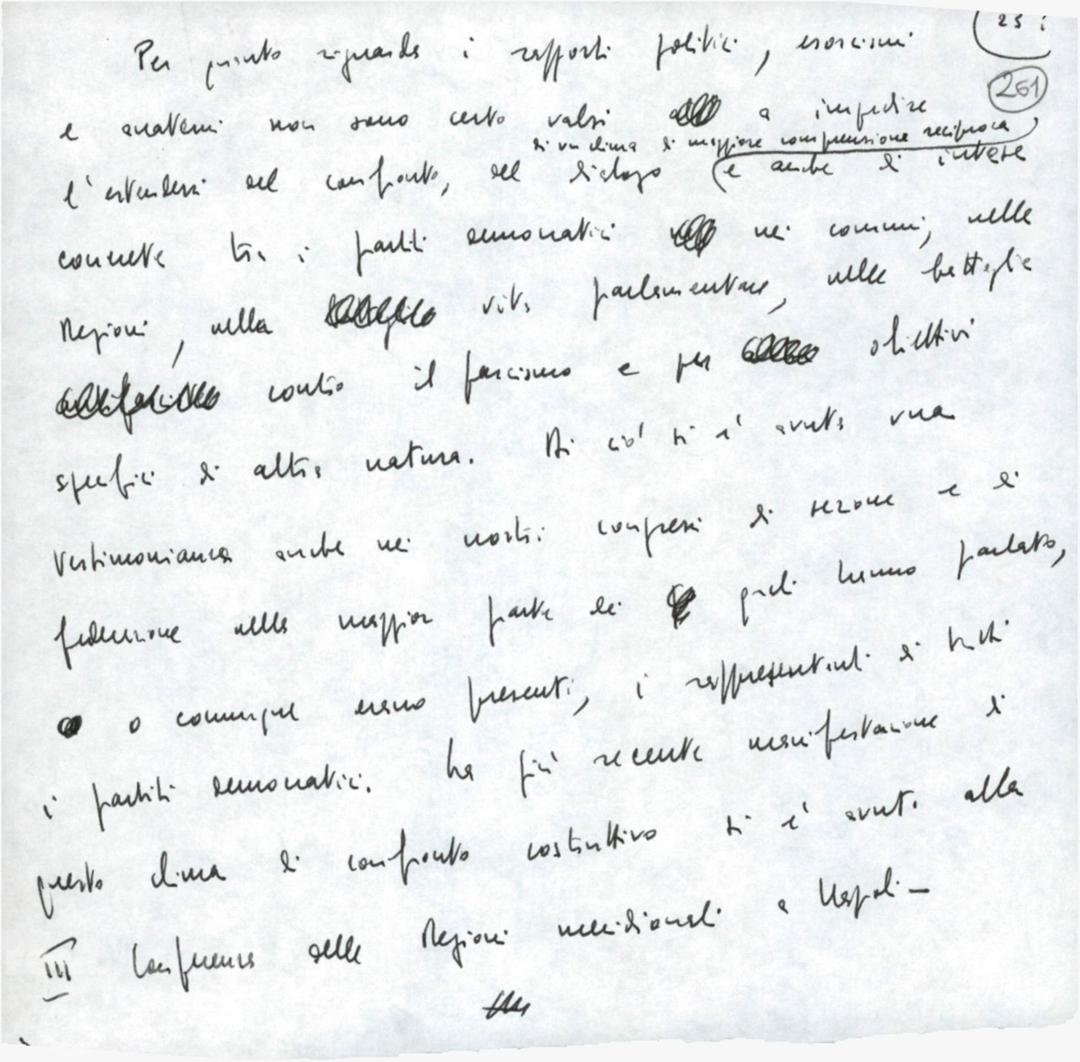 25
261
Per quanto riguarda i rapporti politici, esorcismi
e anatemi non sono certo valsi a impedire
di un clima di maggiore comprensione reciproca
l'estendersi del confronto, del dialogo e anche di intese
concrete tra i partiti democratici nei comuni, nelle
Regioni, nella vita parlamentare, nelle battaglie
contro il fascismo e per obiettivi
specifici di altra natura. Di ciò si è avuta una
testimonianza anche nei nostri congressi di sezione e di
federazione nella maggior parte dei quali hanno parlato,
o comunque erano presenti, i rappresentanti di tutti
i partiti democratici. La più recente manifestazione di
questo clima di confronto costruttivo si è avuta alla
III Conferenza delle Regioni meridionali a Napoli -